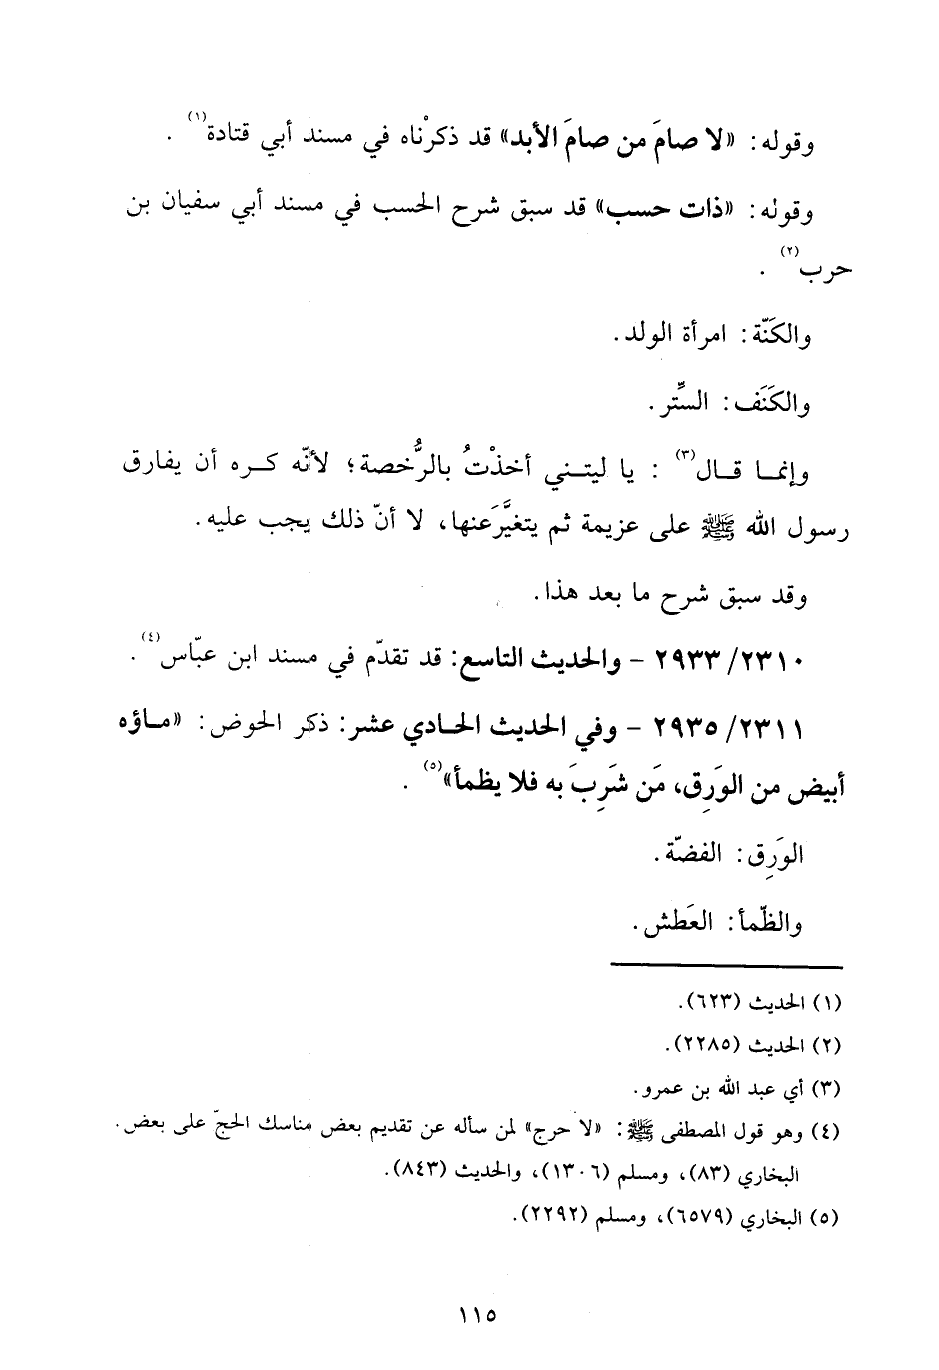 وقوله: «لا صامَ من صامَ الأبد» قد ذكرْناه في مسند أبي قتادة(١) .
وقوله: «ذات حسب» قد سبق شرح الحسب في مسند أبي سفيان بن
حرب(٢) .
والكَنّة: امرأة الولد.
والكَنَف: السِّتر.
وإنمـا قـال(٣) : يا ليتـني أخذْتُ بالرُّخصة؛ لأنّه كـره أن يفارق
رسول الله ﷺ على عزيمة ثم يتغيَّرَ عنها، لا أنّ ذلك يجب عليه.
وقد سبق شرح ما بعد هذا.
٢٩٣٣/٢٣١٠ – والحديث التاسع: قد تقدّم في مسند ابن عبّاس(٤).
٢٩٣٥/٢٣١١ – وفي الحديث الحـادي عشر: ذكر الحوض: «مـاؤه
أبيض من الوَرِق، مَن شَرِبَ به فلا يظمأ»(٥) .
الوَرِق: الفضّة.
والظّمأ: العَطش.
(١) الحديث (٦٢٣).
(٢) الحديث (٢٢٨٥).
(٣) أي عبد الله بن عمرو.
(٤) وهو قول المصطفى ﷺ: «لا حرج» لمن سأله عن تقديم بعض مناسك الحجّ على بعض.
البخاري (٨٣)، ومسلم (١٣٠٦)، والحديث (٨٤٣).
(٥) البخاري (٦٥٧٩)، ومسلم (٢٢٩٢).
١١٥